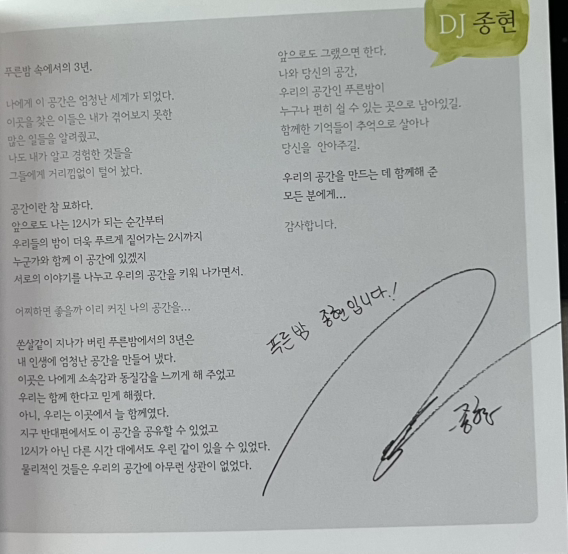 DJ 종현
푸른밤 속에서의 3년.
나에게 이 공간은 엄청난 세계가 되었다.
이곳을 찾은 이들은 내가 겪어보지 못한
많은 일들을 알려줬고,
나도 내가 알고 경험한 것들을
그들에게 거리낌없이 털어 놨다.
공간이란 참 묘하다.
앞으로도 나는 12시가 되는 순간부터
우리들의 밤이 더욱 푸르게 짙어가는 2시까지
누군가와 함께 이 공간에 있겠지
서로의 이야기를 나누고 우리의 공간을 키워 나가면서.
어찌하면 좋을까 이리 커진 나의 공간을...
쏜살같이 지나가 버린 푸른밤에서의 3년은
내 인생에 엄청난 공간을 만들어 냈다.
이곳은 나에게 소속감과 동질감을 느끼게 해 주었고
우리는 함께 한다고 믿게 해줬다.
아니, 우리는 이곳에서 늘 함께였다.
지구 반대편에서도 이 공간을 공유할 수 있었고
12시가 아닌 다른 시간 대에서도 우린 같이 있을 수 있었다.
물리적인 것들은 우리의 공간에 아무런 상관이 없었다.
앞으로도 그랬으면 한다.
나와 당신의 공간,
우리의 공간인 푸른밤이
누구나 편히 쉴 수 있는 곳으로 남아있길.
함께한 기억들이 추억으로 살아나
당신을 안아주길.
우리의 공간을 만드는 데 함께해 준
모든 분에게...
감사합니다.
푸른밤 종현입니다!
-종현-